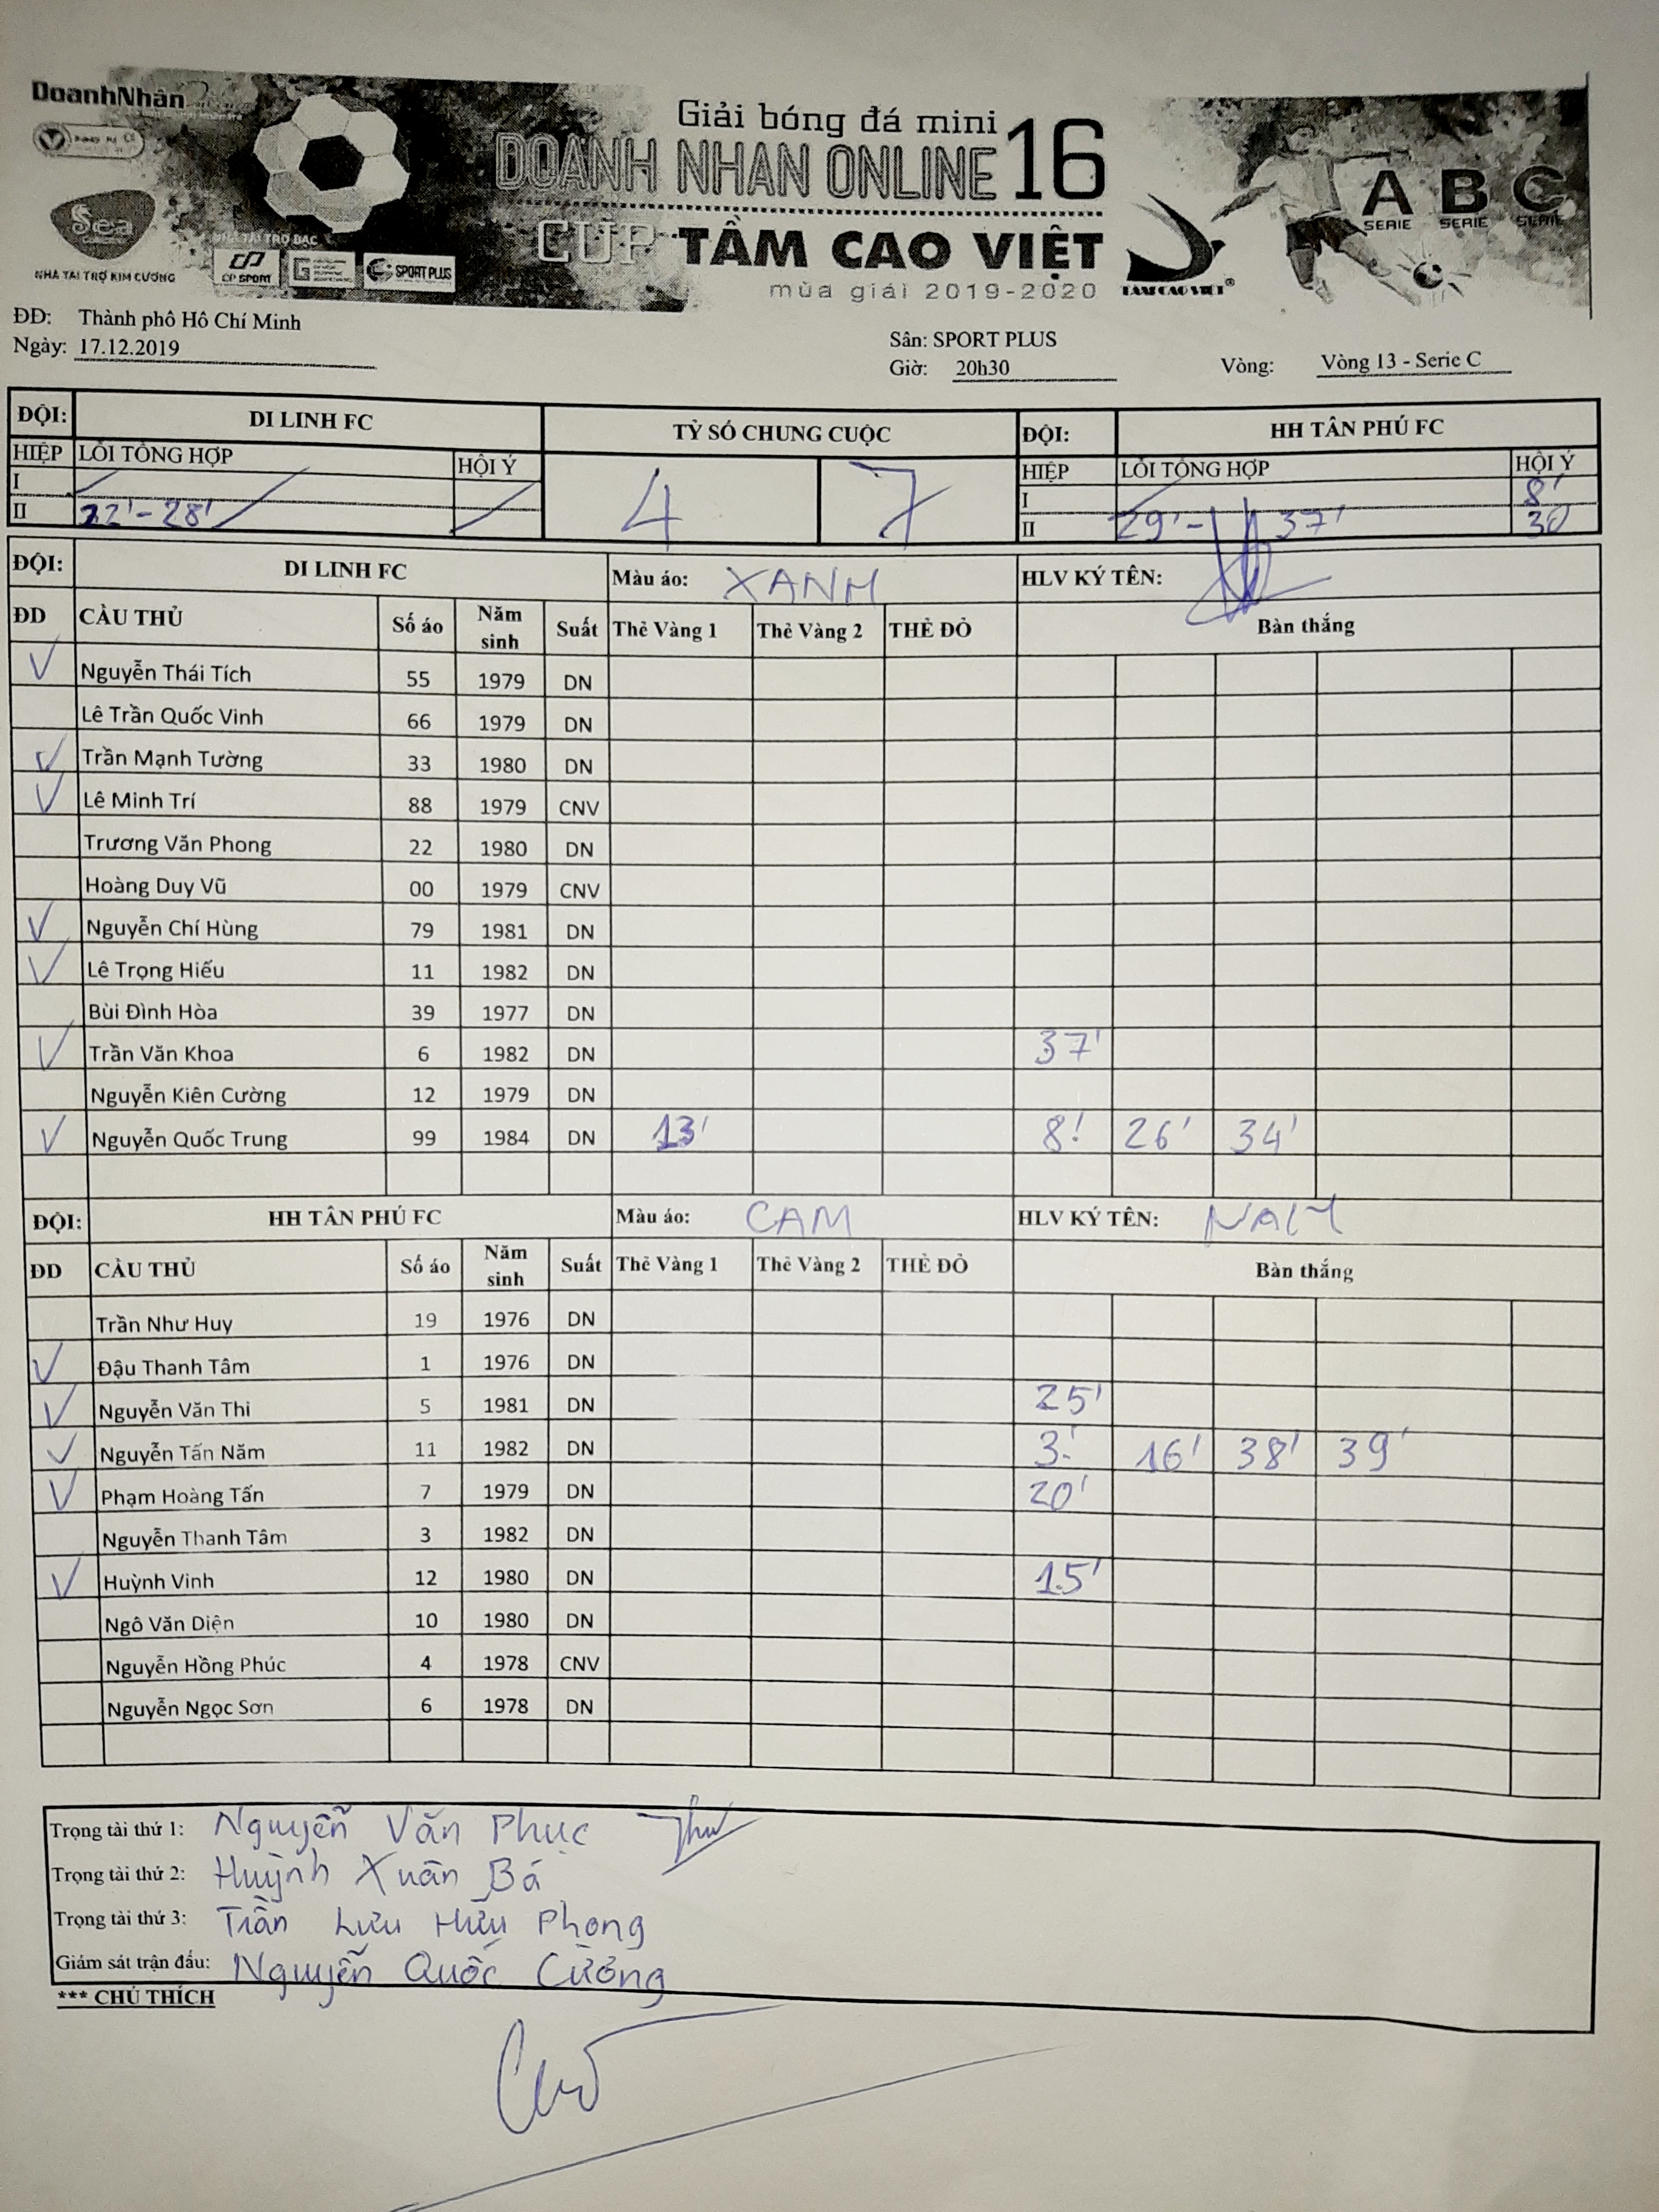 DoanhNhân
Giải bóng đá mini
DOANH NHAN ONLINE 16
CUP TẦM CAO VIỆT
mùa giải 2019-2020
Sea
NHÀ TÀI TRỢ KIM CƯƠNG
NHÀ TÀI TRỢ BẠC
CP SPORT
SPORT PLUS
TẦM CAO VIỆT®
A B C
SERIE SERIE SERIE
ĐĐ: Thành phô Hô Chí Minh
Ngày: 17.12.2019
Sân: SPORT PLUS
Giờ: 20h30
Vòng: Vòng 13 - Serie C
ĐỘI: DI LINH FC TỶ SỐ CHUNG CUỘC ĐỘI: HH TÂN PHÚ FC
HIỆP LỖI TỔNG HỢP HỘI Ý 4 7 HIỆP LỖI TỔNG HỢP HỘI Ý
I I 8'
II 22'-28' II 29'- 37' 30
ĐỘI: DI LINH FC Màu áo: XANH HLV KÝ TÊN:
ĐD CẦU THỦ Số áo Năm sinh Suất Thẻ Vàng 1 Thẻ Vàng 2 THẺ ĐỎ Bàn thắng
Nguyễn Thái Tích 55 1979 DN
Lê Trần Quốc Vinh 66 1979 DN
Trần Mạnh Tường 33 1980 DN
Lê Minh Trí 88 1979 CNV
Trương Văn Phong 22 1980 DN
Hoàng Duy Vũ 00 1979 CNV
Nguyễn Chí Hùng 79 1981 DN
Lê Trọng Hiếu 11 1982 DN
Bùi Đình Hòa 39 1977 DN
Trần Văn Khoa 6 1982 DN 37'
Nguyễn Kiên Cường 12 1979 DN
Nguyễn Quốc Trung 99 1984 DN 13' 8' 26' 34'
ĐỘI: HH TÂN PHÚ FC Màu áo: CAM HLV KÝ TÊN: NAM
ĐD CẦU THỦ Số áo Năm sinh Suất Thẻ Vàng 1 Thẻ Vàng 2 THẺ ĐỎ Bàn thắng
Trần Như Huy 19 1976 DN
Đậu Thanh Tâm 1 1976 DN
Nguyễn Văn Thi 5 1981 DN 25'
Nguyễn Tấn Năm 11 1982 DN 3' 16' 38' 39'
Phạm Hoàng Tấn 7 1979 DN 20'
Nguyễn Thanh Tâm 3 1982 DN
Huỳnh Vinh 12 1980 DN 15'
Ngô Văn Diện 10 1980 DN
Nguyễn Hồng Phúc 4 1978 CNV
Nguyễn Ngọc Sơn 6 1978 DN
Trọng tài thứ 1: Nguyễn Văn Phục
Trọng tài thứ 2: Huỳnh Xuân Bá
Trọng tài thứ 3: Trần Lưu Hữu Phong
Giám sát trận đấu: Nguyễn Quốc Cường
*** CHÚ THÍCH